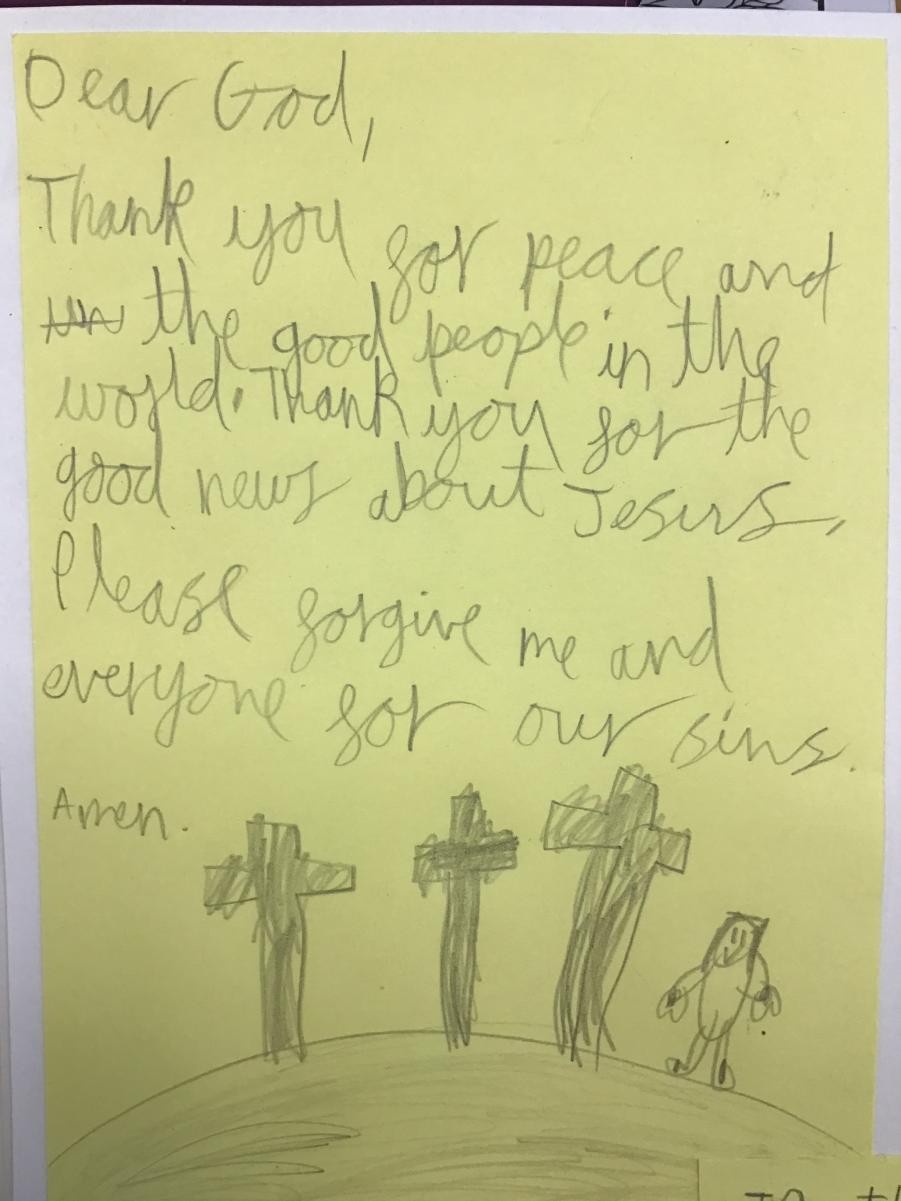 Dear God,
Thank you for peace and
the good people in the
world. Thank you for the
good news about Jesus,
Please forgive me and
everyone for our sins.
Amen.